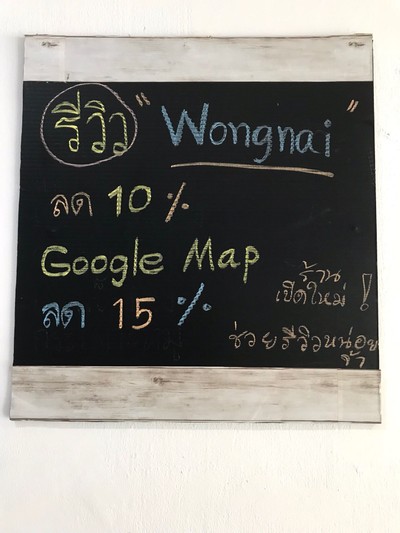 รีวิว " Wongnai "
ลด 10 %
Google Map
ลด 15 %
ร้าน
เปิดใหม่ !
ช่วยรีวิวหน่อย
จ้า